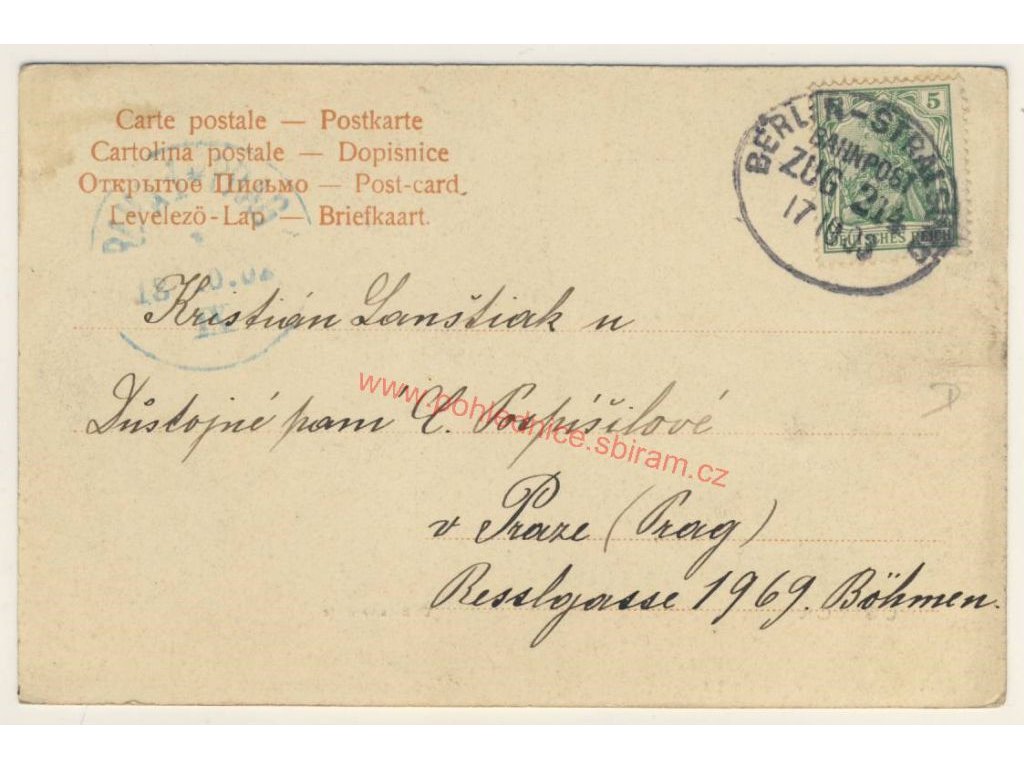 Carte postale — Postkarte
Cartolina postale — Dopisnice
Открытое Письмо — Post-card
Levelező-Lap — Briefkaart.
BERLIN–STRALSUND
BAHNPOST
ZUG 214
17 10 03
5
DEUTSCHES REICH
Kristián Lanštiak u
Důstojné paní C. Pospíšilové
v Praze (Prag)
Resslgasse 1969. Böhmen.
www.pohlednice.sbiram.cz